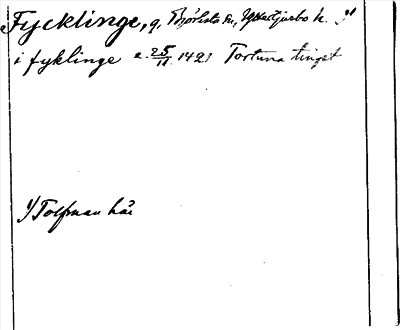 Fycklinge, g, Björksta sn, Yttertjurbo h. 1)
i fyklinge a. 25/11 1421 Tortuna tinget
1) Tolfman här